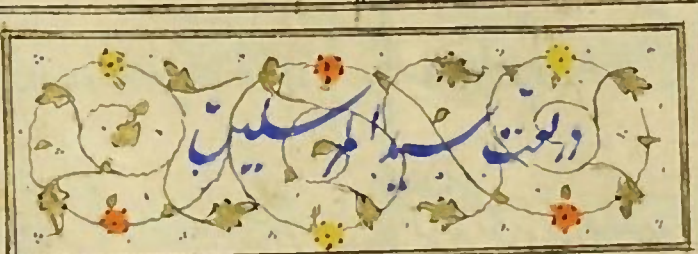 در نعت سید المرسلین